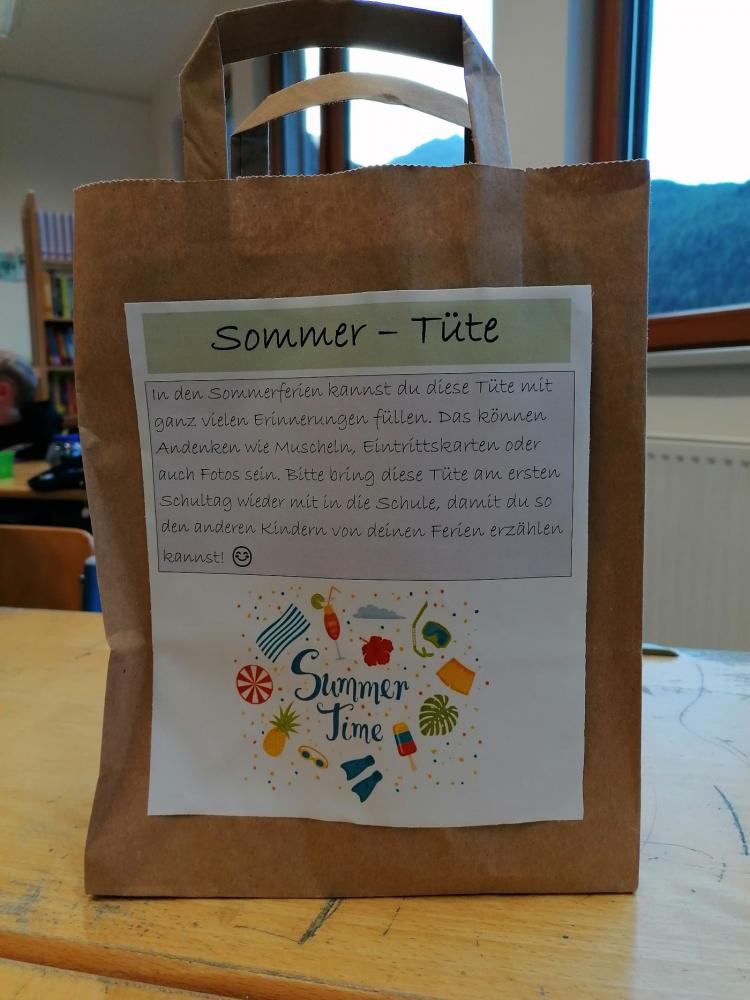 Sommer – Tüte
In den Sommerferien kannst du diese Tüte mit
ganz vielen Erinnerungen füllen. Das können
Andenken wie Muscheln, Eintrittskarten oder
auch Fotos sein. Bitte bring diese Tüte am ersten
Schultag wieder mit in die Schule, damit du so
den anderen Kindern von deinen Ferien erzählen
kannst! 😊
Summer
Time